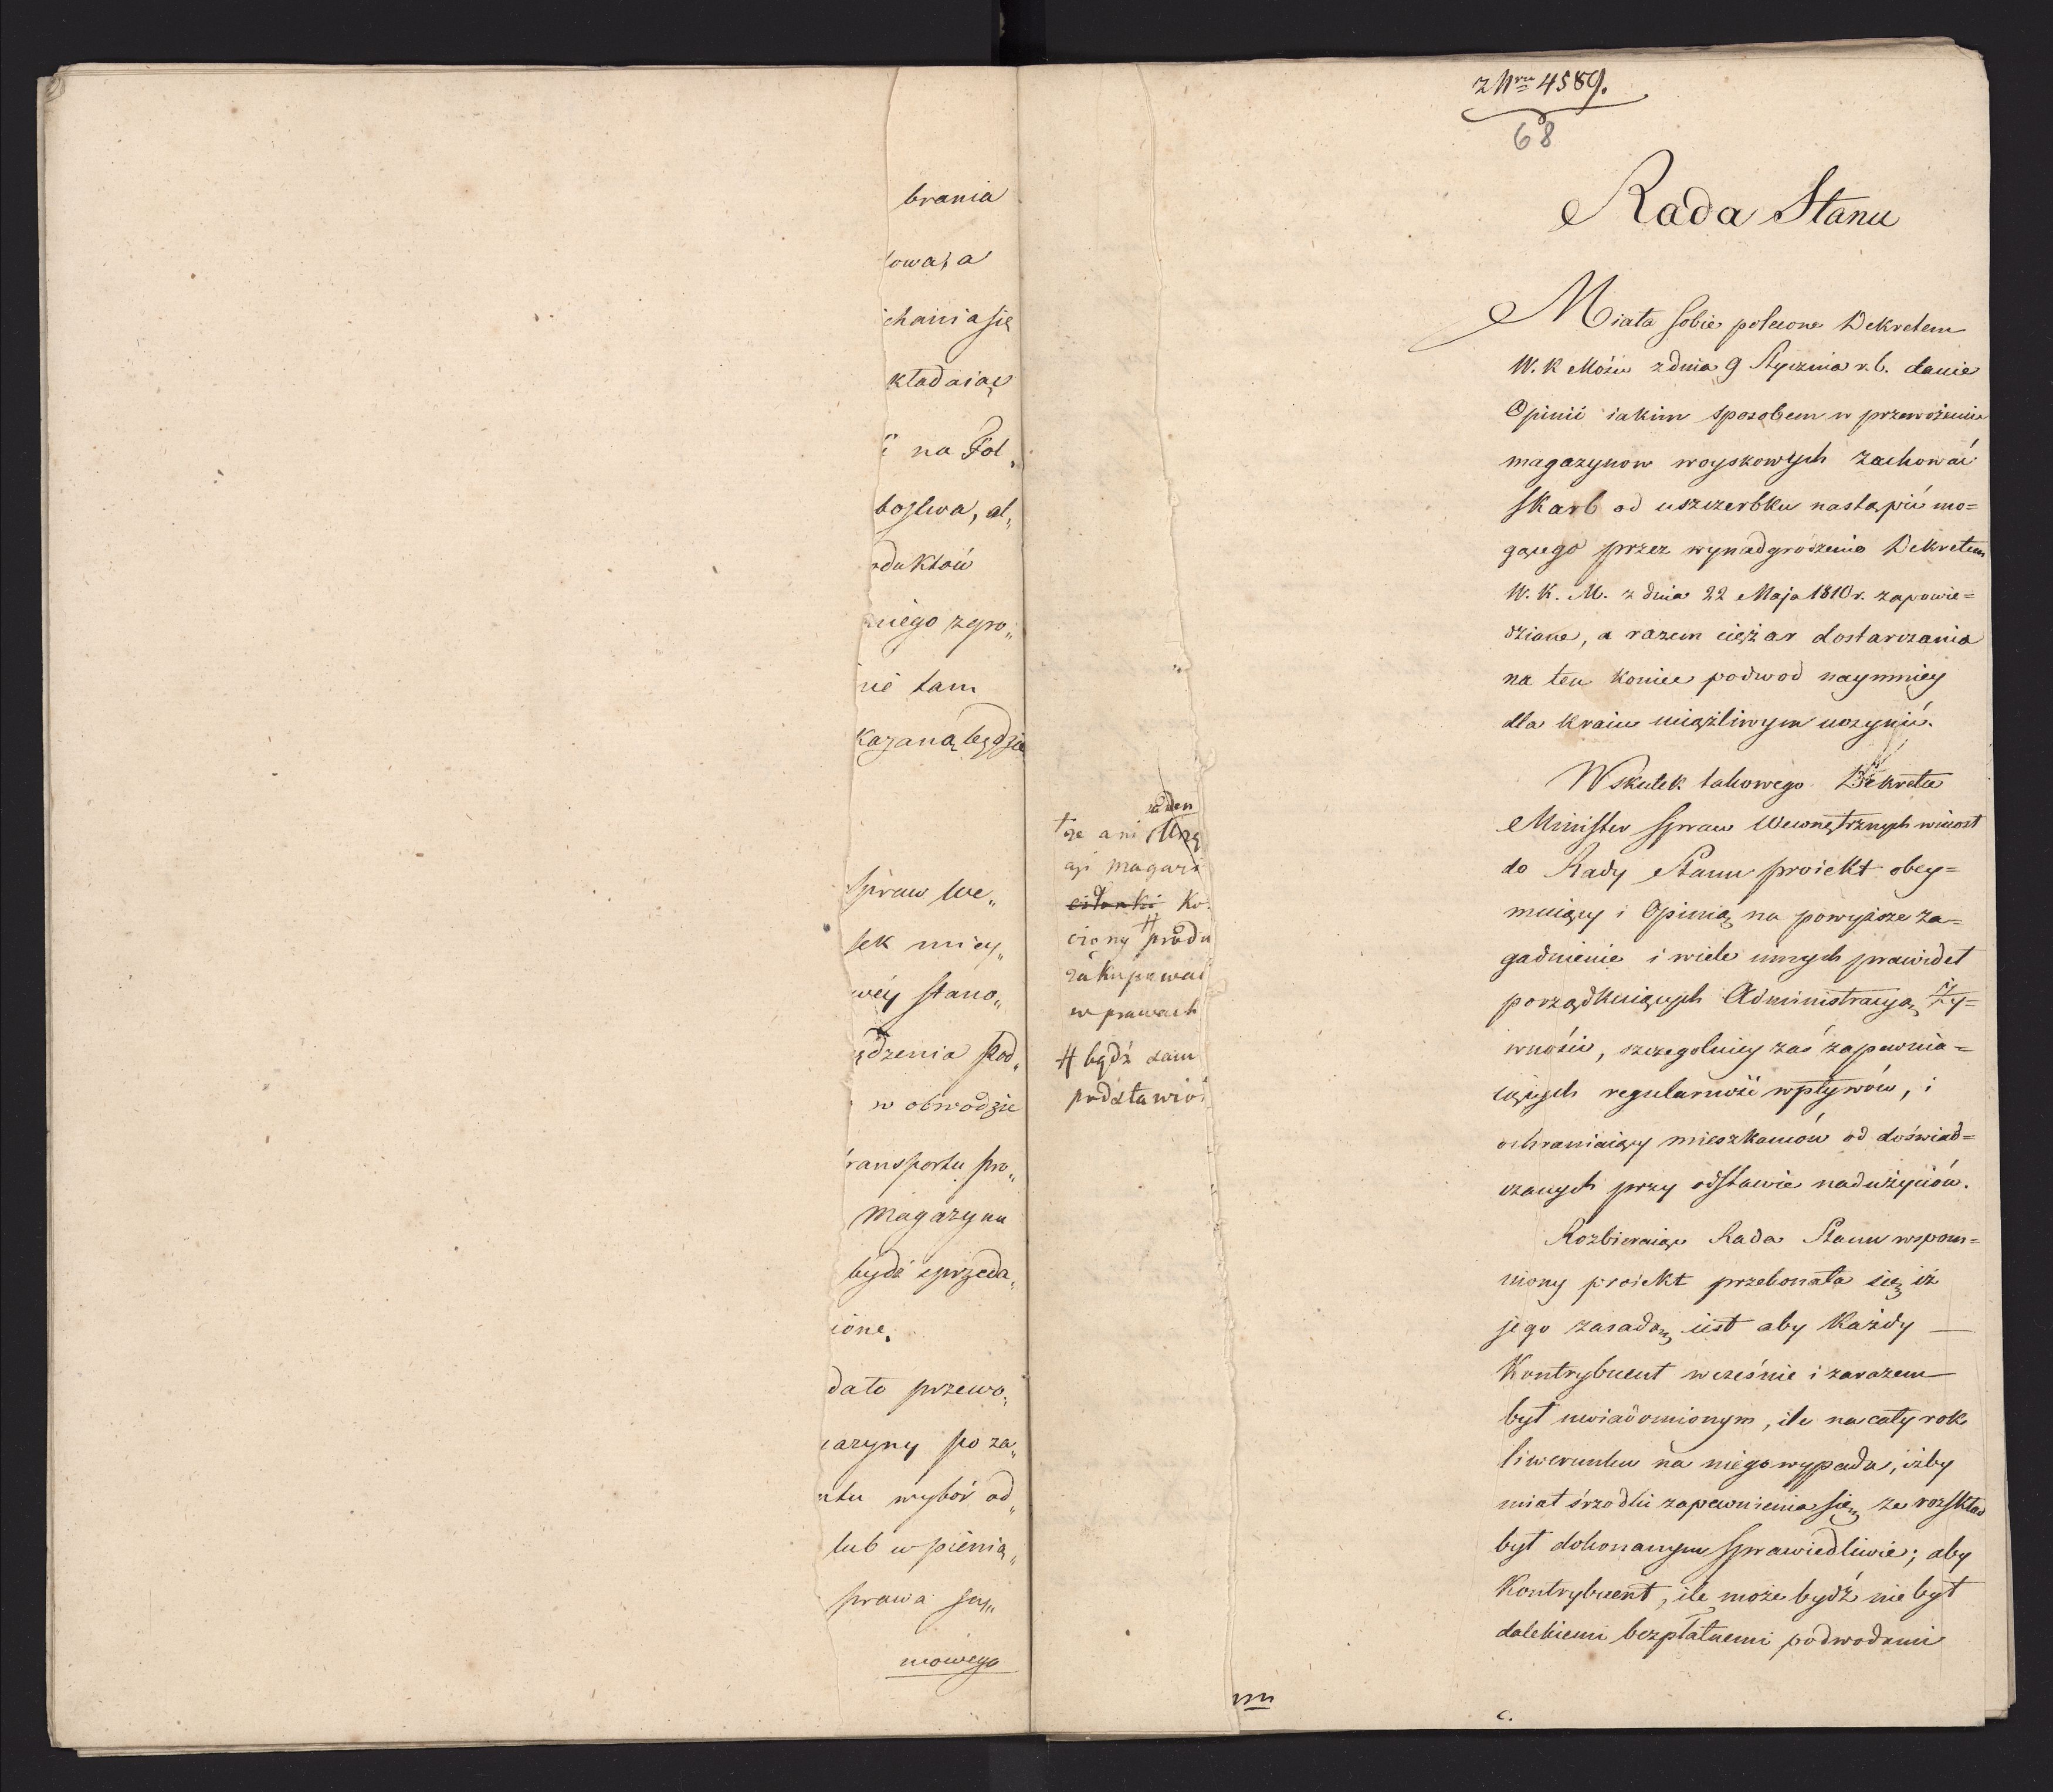 brania
owała
chania się
kładaiąc
na Fol„
bostwa, al„
oduktów
niego zgro„
nie tam
kazaną będzie
Spraw We„
sek miey„
wéy stano„
ądzenia Pod„
w obwodzie
transportu pro„
Magazynu
bydź sprzeda„
ione.
dato przewo„
azyny po za„
ntu wybór od„
lub w pienią„
prawa sey„
mowego
że ani
api magazi
ciłonki ko
ciony produ
zakupować
w prawach
# bądź sam
podstawio
z Nru 4589.
68
Rada Stanu
Miała sobie polecone Dekretem
W. K Mości z dnia 9 Stycznia r. b. danie
Opinii iakim sposobem w przewożeniu
magazynow woyskowych zachować
skarb od uszczerbku nastąpić mo=
gącego przez wynadgrodzenie Dekretem
W. K. M. z dnia 22 Maja 1810 r. zapowie=
dziane, a razem ciężar dostarczania
na ten koniec podwod naymniey
dla kraiu uciążliwym uczynić.
W skutek takowego Dekretu
Minister Spraw Wewnętrznych wniost
do Rady Stanu proiekt obey=
muiący i Opinią na powyższe za=
gadnienie i wiele innych prawideł
porządkuiących Administracyą Ży=
wności, szczegolniey zaś zapewnia=
iących regularność wpływów, i
ochraniaiący mieszkańców od doświad=
czanych przy odstawie nadużyciów.
Rozbieraiąc Rada Stanu wspom=
niony proiekt przekonała się iż
jego zasadą iest aby Każdy
Kontrybuent wcześnie i zarazem
był uwiadomionym, ile na cały rok
liwerunku na niego wypada, iżby
miał śrzodki zapewnienia się że rozkład
był dokonanym sprawiedliwie; aby
Kontrybuent, ile może bydź nie był
dalekiemi bezpłatnemi podwodami
c.